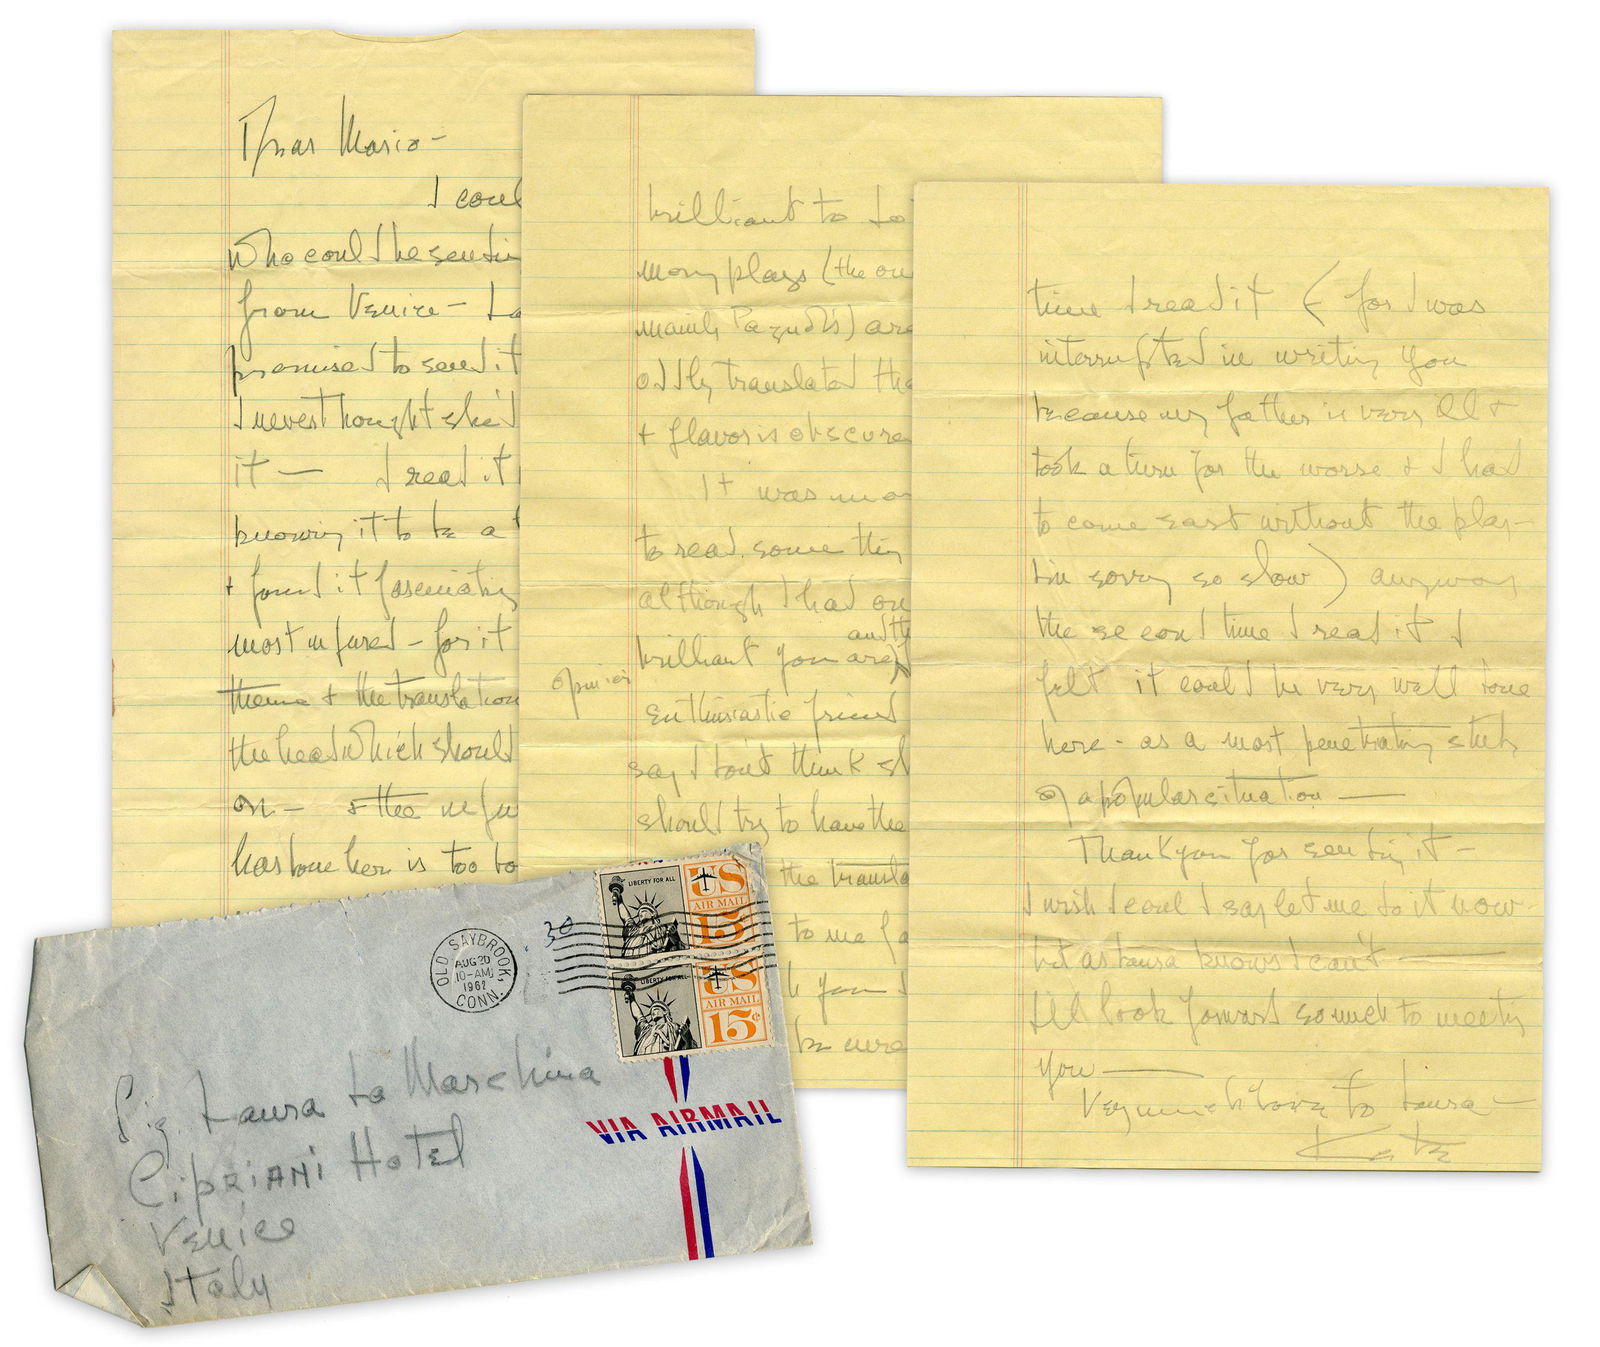 Dear Mario -
I coul
Who could be sendin
from Venice -
promised to send it
I never thought she'd
it - I read it
knowing it to be a
+ found it fascinating
most injured - for it
theme + the translation
the head which should
on - + the
has done here is too
brilliant to do
many plays (the on
mainly are
oddly translated the
+ flavor is obscure
It was
to read something
although I had on
and th
brilliant you are
opinion
enthusiastic friend
say I don't think
should try to have the
the transla
to me fa
you
be
time I read it (for I was
interrupted in writing you
because my father is very ill +
took a turn for the worse + I had
to come east without the play -
I'm sorry so slow) anyway
the second time I read it I
felt it could be very well done
here - as a most penetrating study
of a popular situation -
Thank you for sending it -
I wish I could say let me do it now -
but as Laura knows I can't -
I'll look forward so much to meeting
you -
Very much love to Laura -
Kate
OLD SAYBROOK,
AUG 20
10-AM
1962
CONN.
30
LIBERTY FOR ALL
US
AIR MAIL
15¢
LIBERTY FOR ALL
US
AIR MAIL
15¢
VIA AIRMAIL
Sig. Laura La Marchina
CIPRIANI Hotel
Venice
Italy